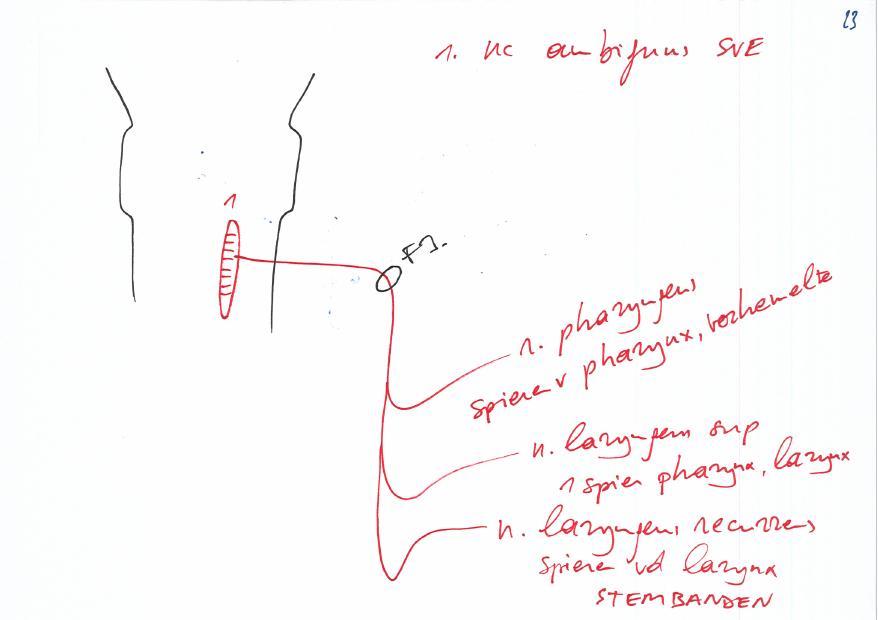 23
1. nc ambiguus SVE
1
FJ.
n. pharyngeus
spieren v pharynx, verhemelte
n. laryngeus sup
1 spier pharynx, larynx
n. laryngeus recurrens
spieren vd larynx
STEMBANDEN